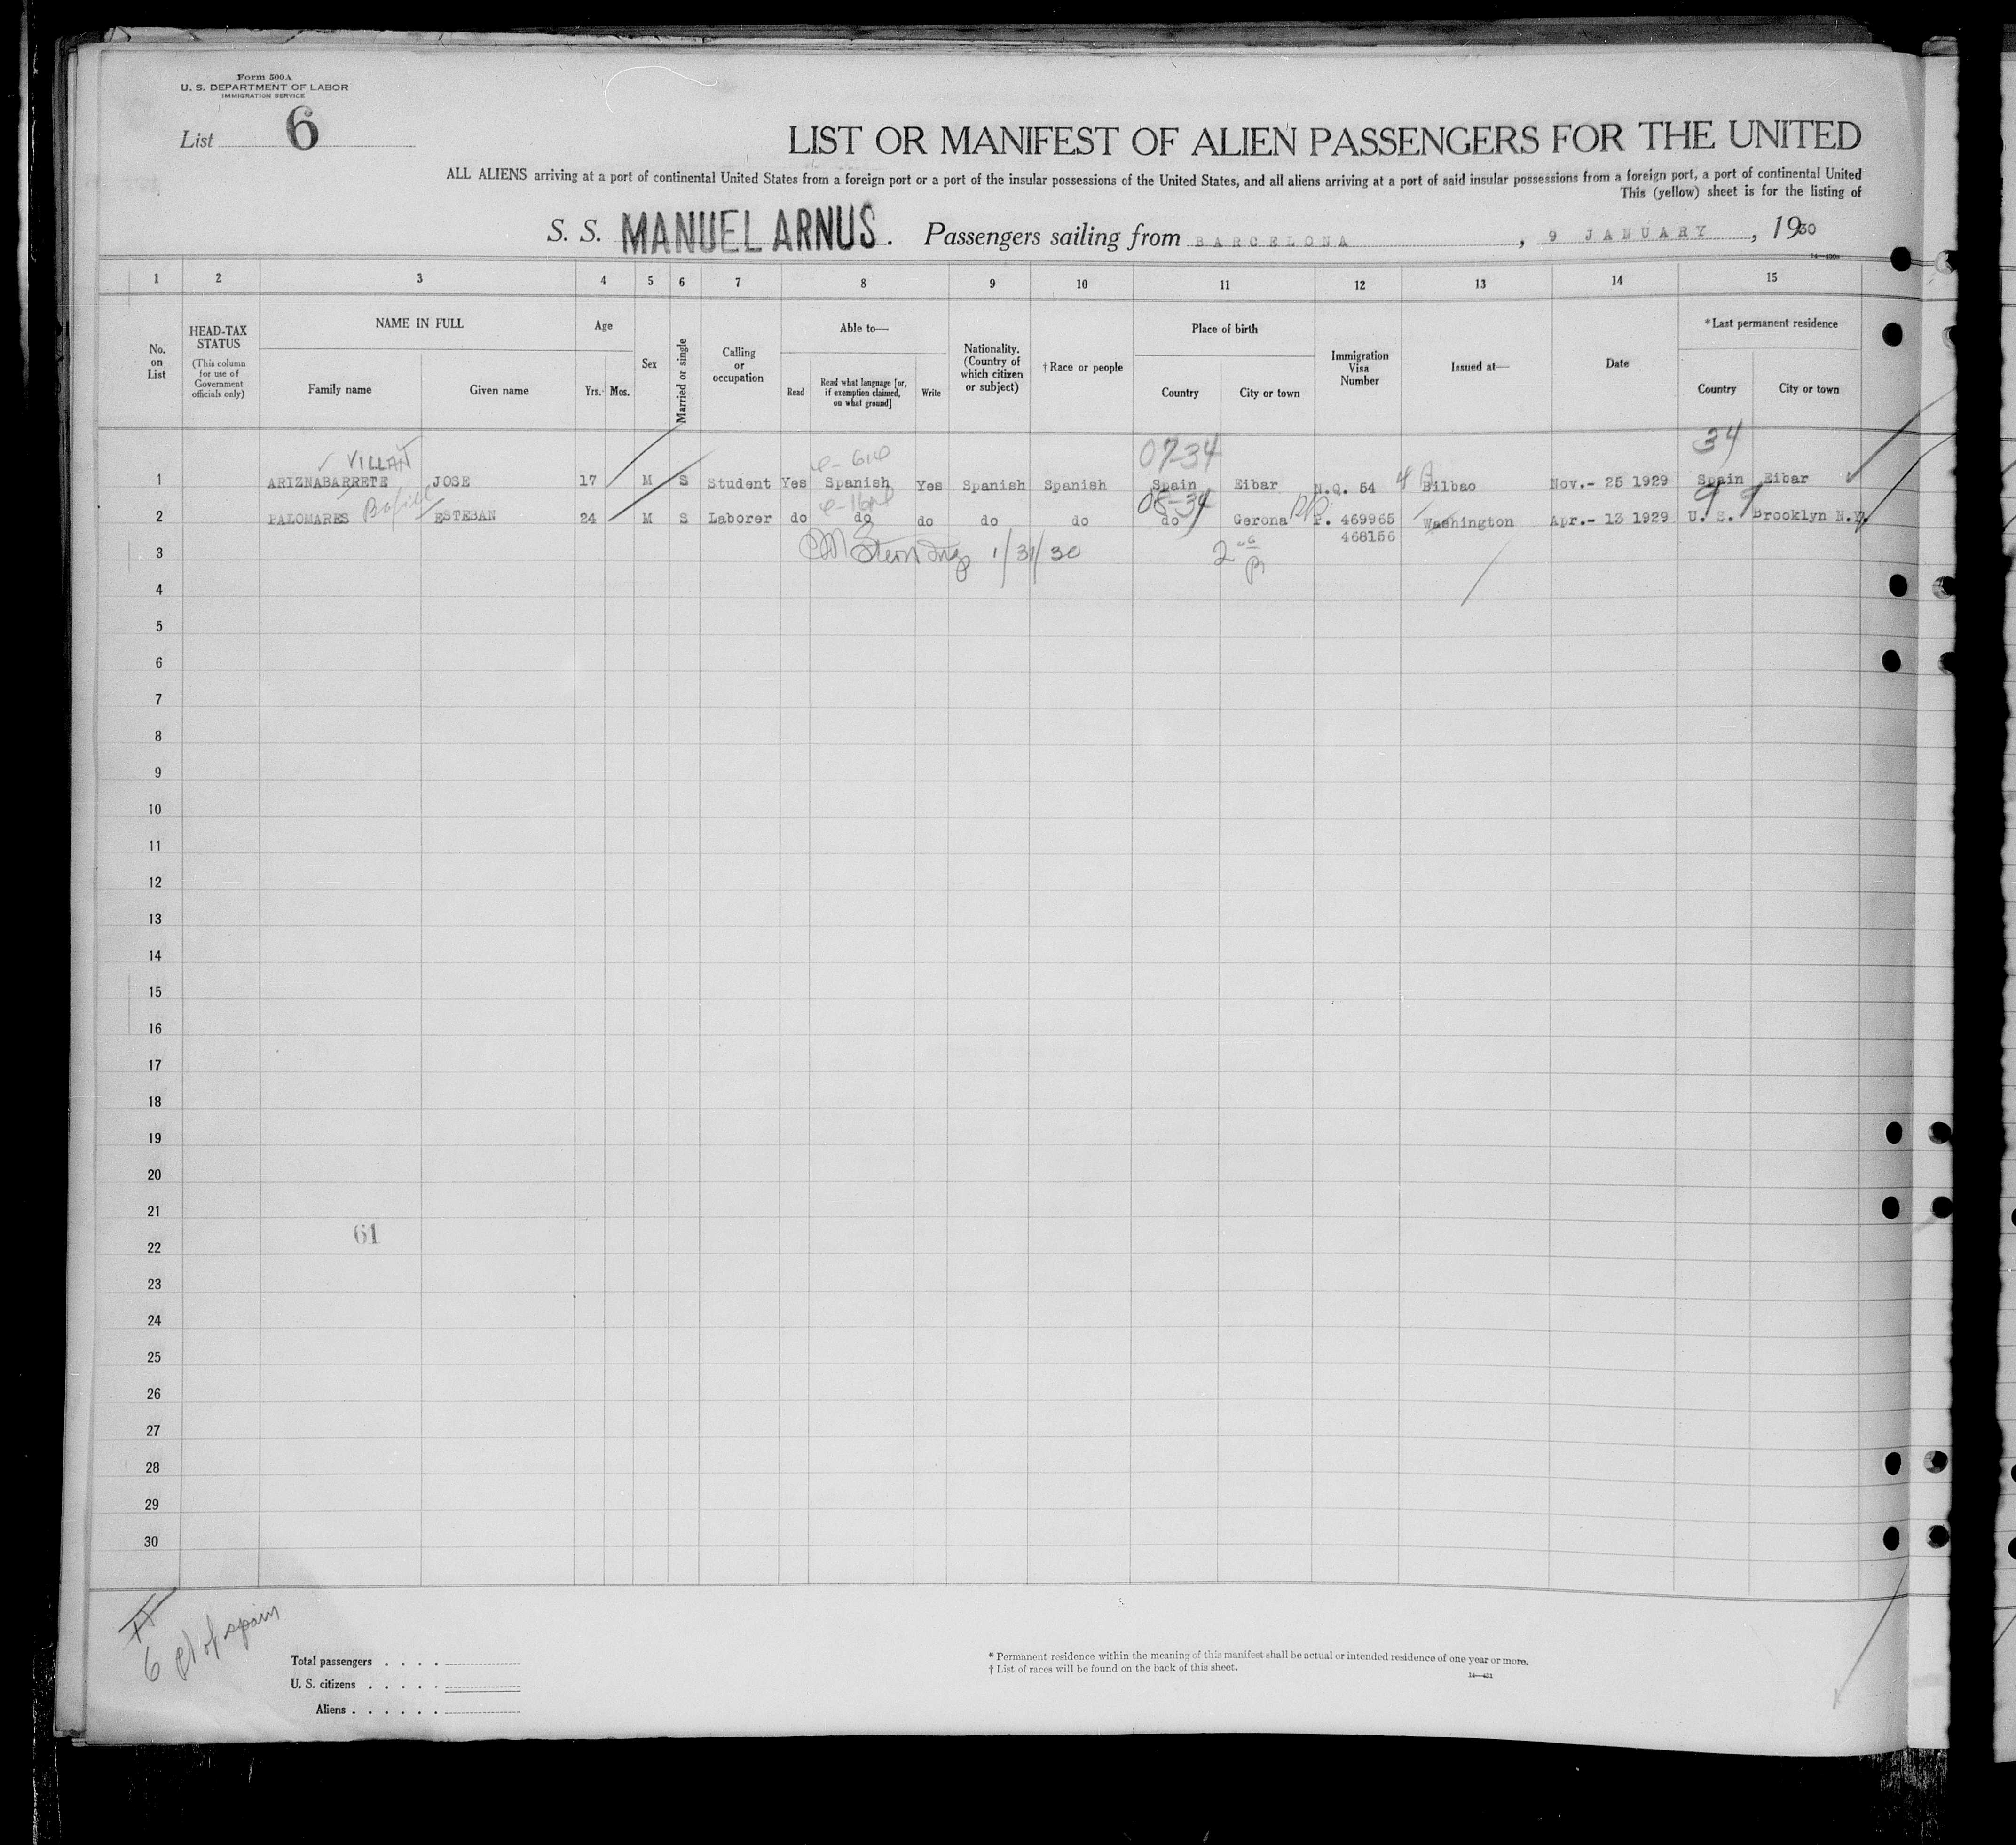 Form 500A
U. S. DEPARTMENT OF LABOR
IMMIGRATION SERVICE
List 6
LIST OR MANIFEST OF ALIEN PASSENGERS FOR THE UNITED
ALL ALIENS arriving at a port of continental United States from a foreign port or a port of the insular possessions of the United States, and all aliens arriving at a port of said insular possessions from a foreign port, a port of continental United
This (yellow) sheet is for the listing of
S. S. MANUEL ARNUS. Passengers sailing from BARCELONA, 9 JANUARY, 1930
1 2 3 4 5 6 7 8 9 10 11 12 13 14 15
No. on List
HEAD-TAX STATUS
(This column for use of Government officials only)
NAME IN FULL
Family name
Given name
Age
Yrs. Mos.
Sex
Married or single
Calling or occupation
Able to—
Read
Read what language [or, if exemption claimed, on what ground]
Write
Nationality. (Country of which citizen or subject)
†Race or people
Place of birth
Country
City or town
Immigration Visa Number
Issued at—
Date
*Last permanent residence
Country
City or town
VILLAÑ 07-34 34
1 ARIZNABARRETE JOSE 17 M S Student Yes Spanish Yes Spanish Spanish Spain Eibar N.Q. 54 Bilbao Nov.- 25 1929 Spain Eibar
08-34 9 9
2 PALOMARES ESTEBAN 24 M S Laborer do do do do do do Gerona P. 469965 Washington Apr.- 13 1929 U. S. Brooklyn N.Y.
468156
3 1/31/30
4
5
6
7
8
9
10
11
12
13
14
15
16
17
18
19
20
21
61
22
23
24
25
26
27
28
29
30
6 pt of spain
Total passengers . . . .
U. S. citizens . . . . .
Aliens . . . . . .
* Permanent residence within the meaning of this manifest shall be actual or intended residence of one year or more.
† List of races will be found on the back of this sheet.